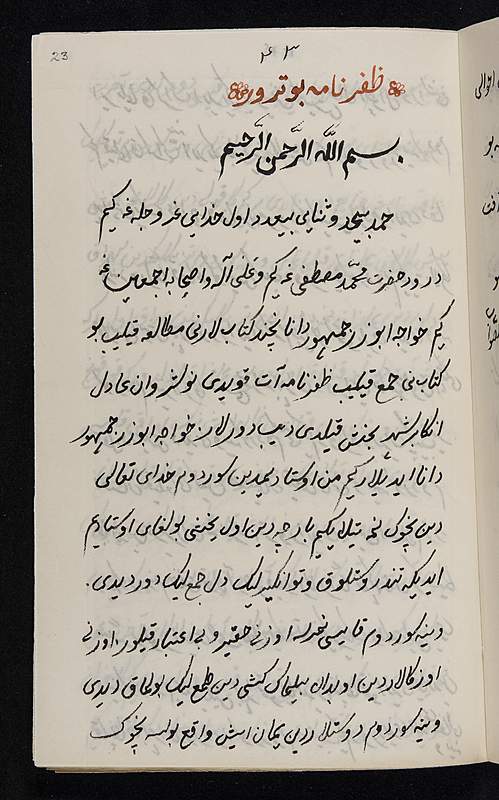 23
۴۳
ظفرنامه بو ترور
بسم الله الرحمن الرحیم
حمد بیحد و ثنایی بیعدد اول خدایی عز و جله غه کیم
درود حضرت محمد مصطفی غه کیم و علی آله و اصحابه اجمعین غه
کیم خواجه ابوزرجمهور دانا نچند کتاب لارنی مطالعه قیلیب بو
کتاب نی جمع قیلیب ظفرنامه آت قویدی نوشروان عادل
انکا بر شهر بخش قیلدی دیب دورلار خواجه ابوزرجمهور
دانا ایدیلار کیم من اوستادیمدین سوردوم خدای تعالی
دین نچوک نمه تیلایکیم بارچه دین اول یخشی بولغای اوستادیم
ایدیکه تندروستلوق و توانکیرلیک دل جمع لیک دور دیدی.
و ینه سوردوم قایسی نمرسه اوزنی حقیر و بی اعتبار قیلور اوزنی
اوزکالاردین اوبدان بیلماک کشی دین طمع لیک بولماق دیدی
و ینه سوردوم دوستلاردین یمان ایش واقع بولسه نچوک